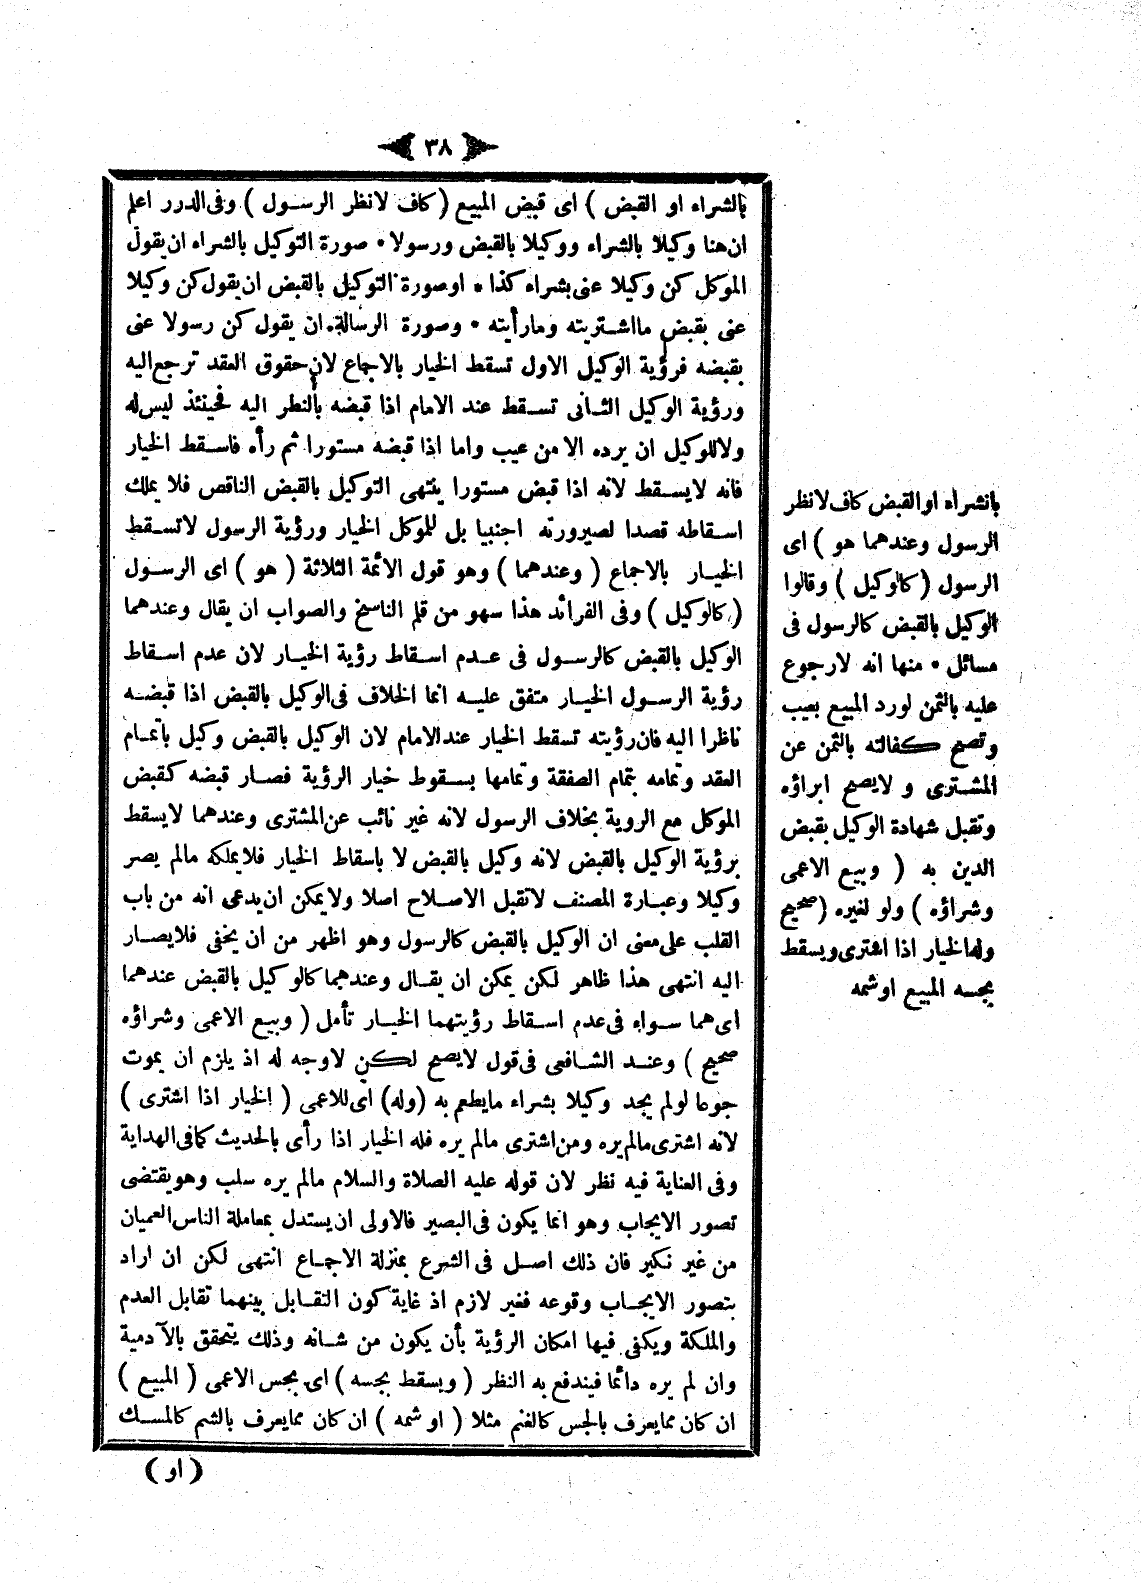 ٣٨
بالشراء او القبض ) اى قبض المبيع ( كاف لانظر الرسول ) وفى الدرر اعلم
ان هنا وكيلا بالشراء ووكيلا بالقبض ورسولا • صورة التوكيل بالشراء ان يقول
الموكل كن وكيلا عنى بشراء كذا • او صورة التوكيل بالقبض ان يقول كن وكيلا
عنى بقبض مااشتريته ومارأيته • وصورة الرسالة ان يقول كن رسولا عنى
بقبضه فرؤية الوكيل الاول تسقط الخيار بالاجماع لان حقوق العقد ترجع اليه
ورؤية الوكيل الثانى تسقط عند الامام اذا قبضه بالنطر اليه فحينئذ ليس له
ولاللوكيل ان يرده الا من عيب واما اذا قبضه مستورا ثم رأه فاسقط الخيار
فانه لايسقط لانه اذا قبض مستورا ينتهى التوكيل بالقبض الناقص فلا يملك
اسقاطه قصدا لصيرورته اجنبيا بل للموكل الخيار ورؤية الرسول لاتسقط
الخيار بالاجماع ( وعندهما ) وهو قول الائمة الثلاثة ( هو ) اى الرسول
( كالوكيل ) وفى الفرائد هذا سهو من قلم الناسخ والصواب ان يقال وعندهما
الوكيل بالقبض كالرسول فى عدم اسقاط رؤية الخيار لان عدم اسقاط
رؤية الرسول الخيار متفق عليه انما الخلاف فى الوكيل بالقبض اذا قبضه
ناظرا اليه فان رؤيته تسقط الخيار عند الامام لان الوكيل بالقبض وكيل باتمام
العقد وتمامه بتمام الصفقة وتمامها بسقوط خيار الرؤية فصار قبضه كقبض
الموكل مع الروية بخلاف الرسول لانه غير نائب عن المشترى وعندهما لايسقط
برؤية الوكيل بالقبض لانه وكيل بالقبض لا باسقاط الخيار فلايملكه مالم يصر
وكيلا وعبارة المصنف لاتقبل الاصلاح اصلا ولايمكن ان يدعى انه من باب
القلب على معنى ان الوكيل بالقبض كالرسول وهو اظهر من ان يخفى فلايصار
اليه انتهى هذا ظاهر لكن يمكن ان يقال وعندهما كالوكيل بالقبض عندهما
اى هما سواء فى عدم اسقاط رؤيتهما الخيار تأمل ( وبيع الاعمى وشراؤه
صحيح ) وعند الشافعى فى قول لايصح لكن لاوجه له اذ يلزم ان يموت
جوعا لولم يجد وكيلا بشراء مايطعم به ( وله ) اى للاعمى ( الخيار اذا اشترى )
لانه اشترى مالم يره ومن اشترى مالم يره فله الخيار اذا رأى بالحديث كمافى الهداية
وفى العناية فيه نظر لان قوله عليه الصلاة والسلام مالم يره سلب وهو يقتضى
تصور الايجاب وهو انما يكون فى البصير فالاولى ان يستدل بمعاملة الناس العميان
من غير نكير فان ذلك اصل فى الشرع بمنزلة الاجماع انتهى لكن ان اراد
بتصور الايجاب وقوعه فغير لازم اذ غاية كون التقابل بينهما تقابل العدم
والملكة ويكفى فيها امكان الرؤية بأن يكون من شانه وذلك يتحقق بالآدمية
وان لم يره دائما فيندفع به النظر ( ويسقط بجسه ) اى بجس الاعمى ( المبيع )
ان كان ممايعرف بالجس كالغنم مثلا ( او شمه ) ان كان ممايعرف بالشم كالمسك
( او )
بالشراء او القبض كاف لانظر
الرسول وعندهما هو ) اى
الرسول ( كالوكيل ) وقالوا
الوكيل بالقبض كالرسول فى
مسائل • منها انه لارجوع
عليه بالثمن لورد المبيع بعيب
وتصح كفالته بالثمن عن
المشترى و لايصح ابراؤه
وتقبل شهادة الوكيل بقبض
الدين به ( وبيع الاعمى
وشراؤه ) ولو لغيره ( صحيح
وله الخيار اذا اشترى ويسقط
بجسه المبيع اوشمه